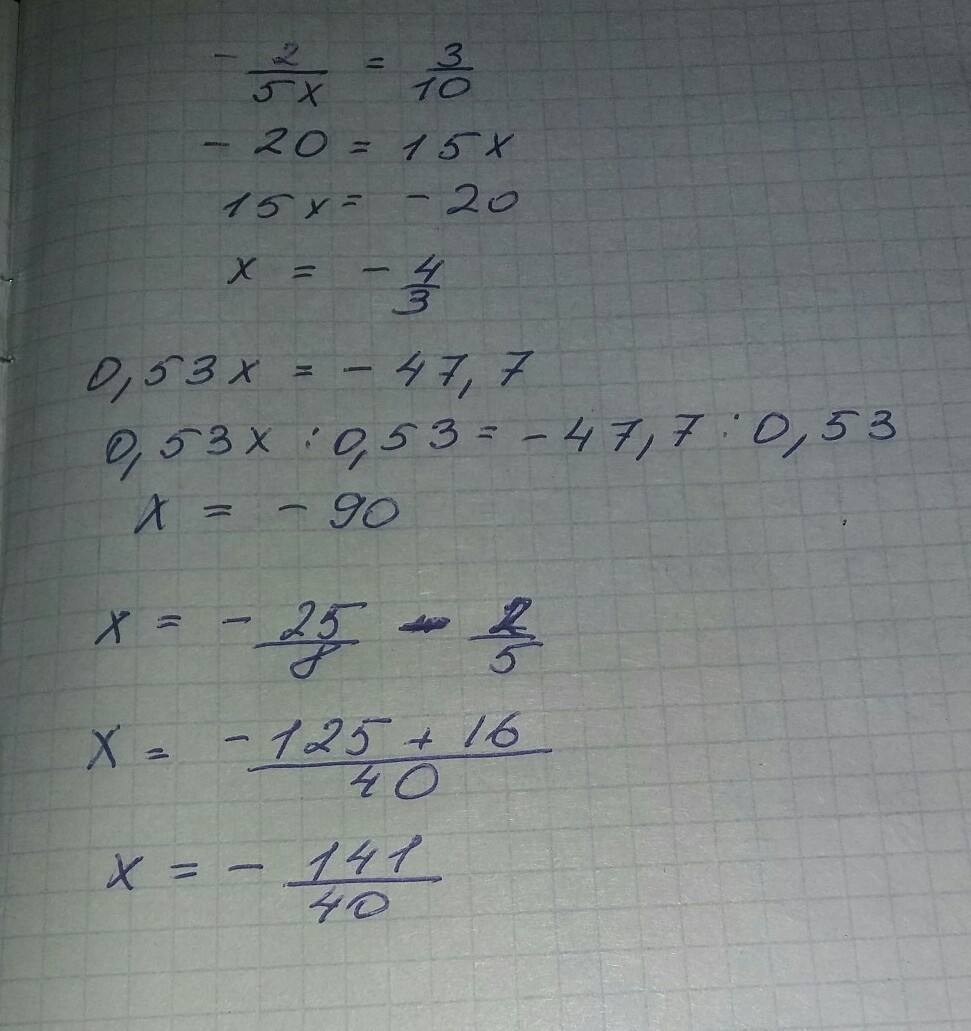 - 2/5x = 3/10
- 20 = 15x
15x = - 20
x = - 4/3
0,53x = - 47,7
0,53x : 0,53 = - 47,7 : 0,53
x = - 90
x = - 25/8 - 2/5
x = - 125 + 16/40
x = - 141/40